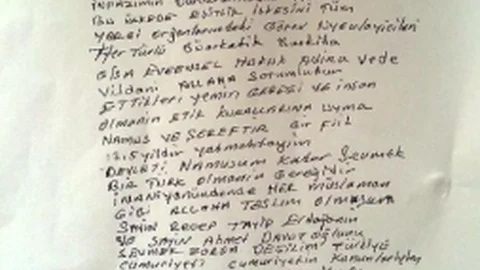 BU ÜLKEDE EŞİTLİK İLKESİNİ TÜM
YARGI Organlarındaki Görev
Her Türlü Bürokratik Baskıda
OLSA EVRENSEL HUKUK Adına Vede
Vicdani ALLAHA Sorumluluk
ETTİKLERİ yemin GEREĞİ VE insan
olmanın ETİK KURALLARINA UYMA
NAMUS VE ŞEREFTİR Bir Fiil
yıldır yatmaktayım
DEVLETİ Namusum Kadar Sevmek
BİR TÜRK olmanın Gereğidir
HER Müslüman
GİBİ ALLAHA TESLİM olmuşum
SAYIN RECEP TAYİP Erdoğanın
VE SAYIN Ahmet DAVUToğlunu
SEVMEK ZORUN DEĞİLİM TÜRKİYE
Cumhuriyeti Cumhuriyetin Kanunlarıyım